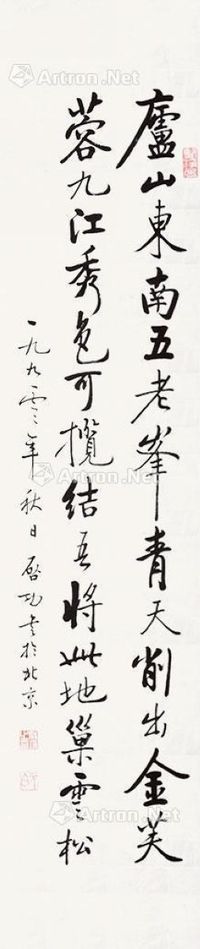 廬山東南五老峯青天削出金芙
蓉九江秀色可攬結吾將此地巢雲松
一九九零年秋日啓功書於北京
Artron.Net
Artron.Net
Artron.Net
Artron.Net